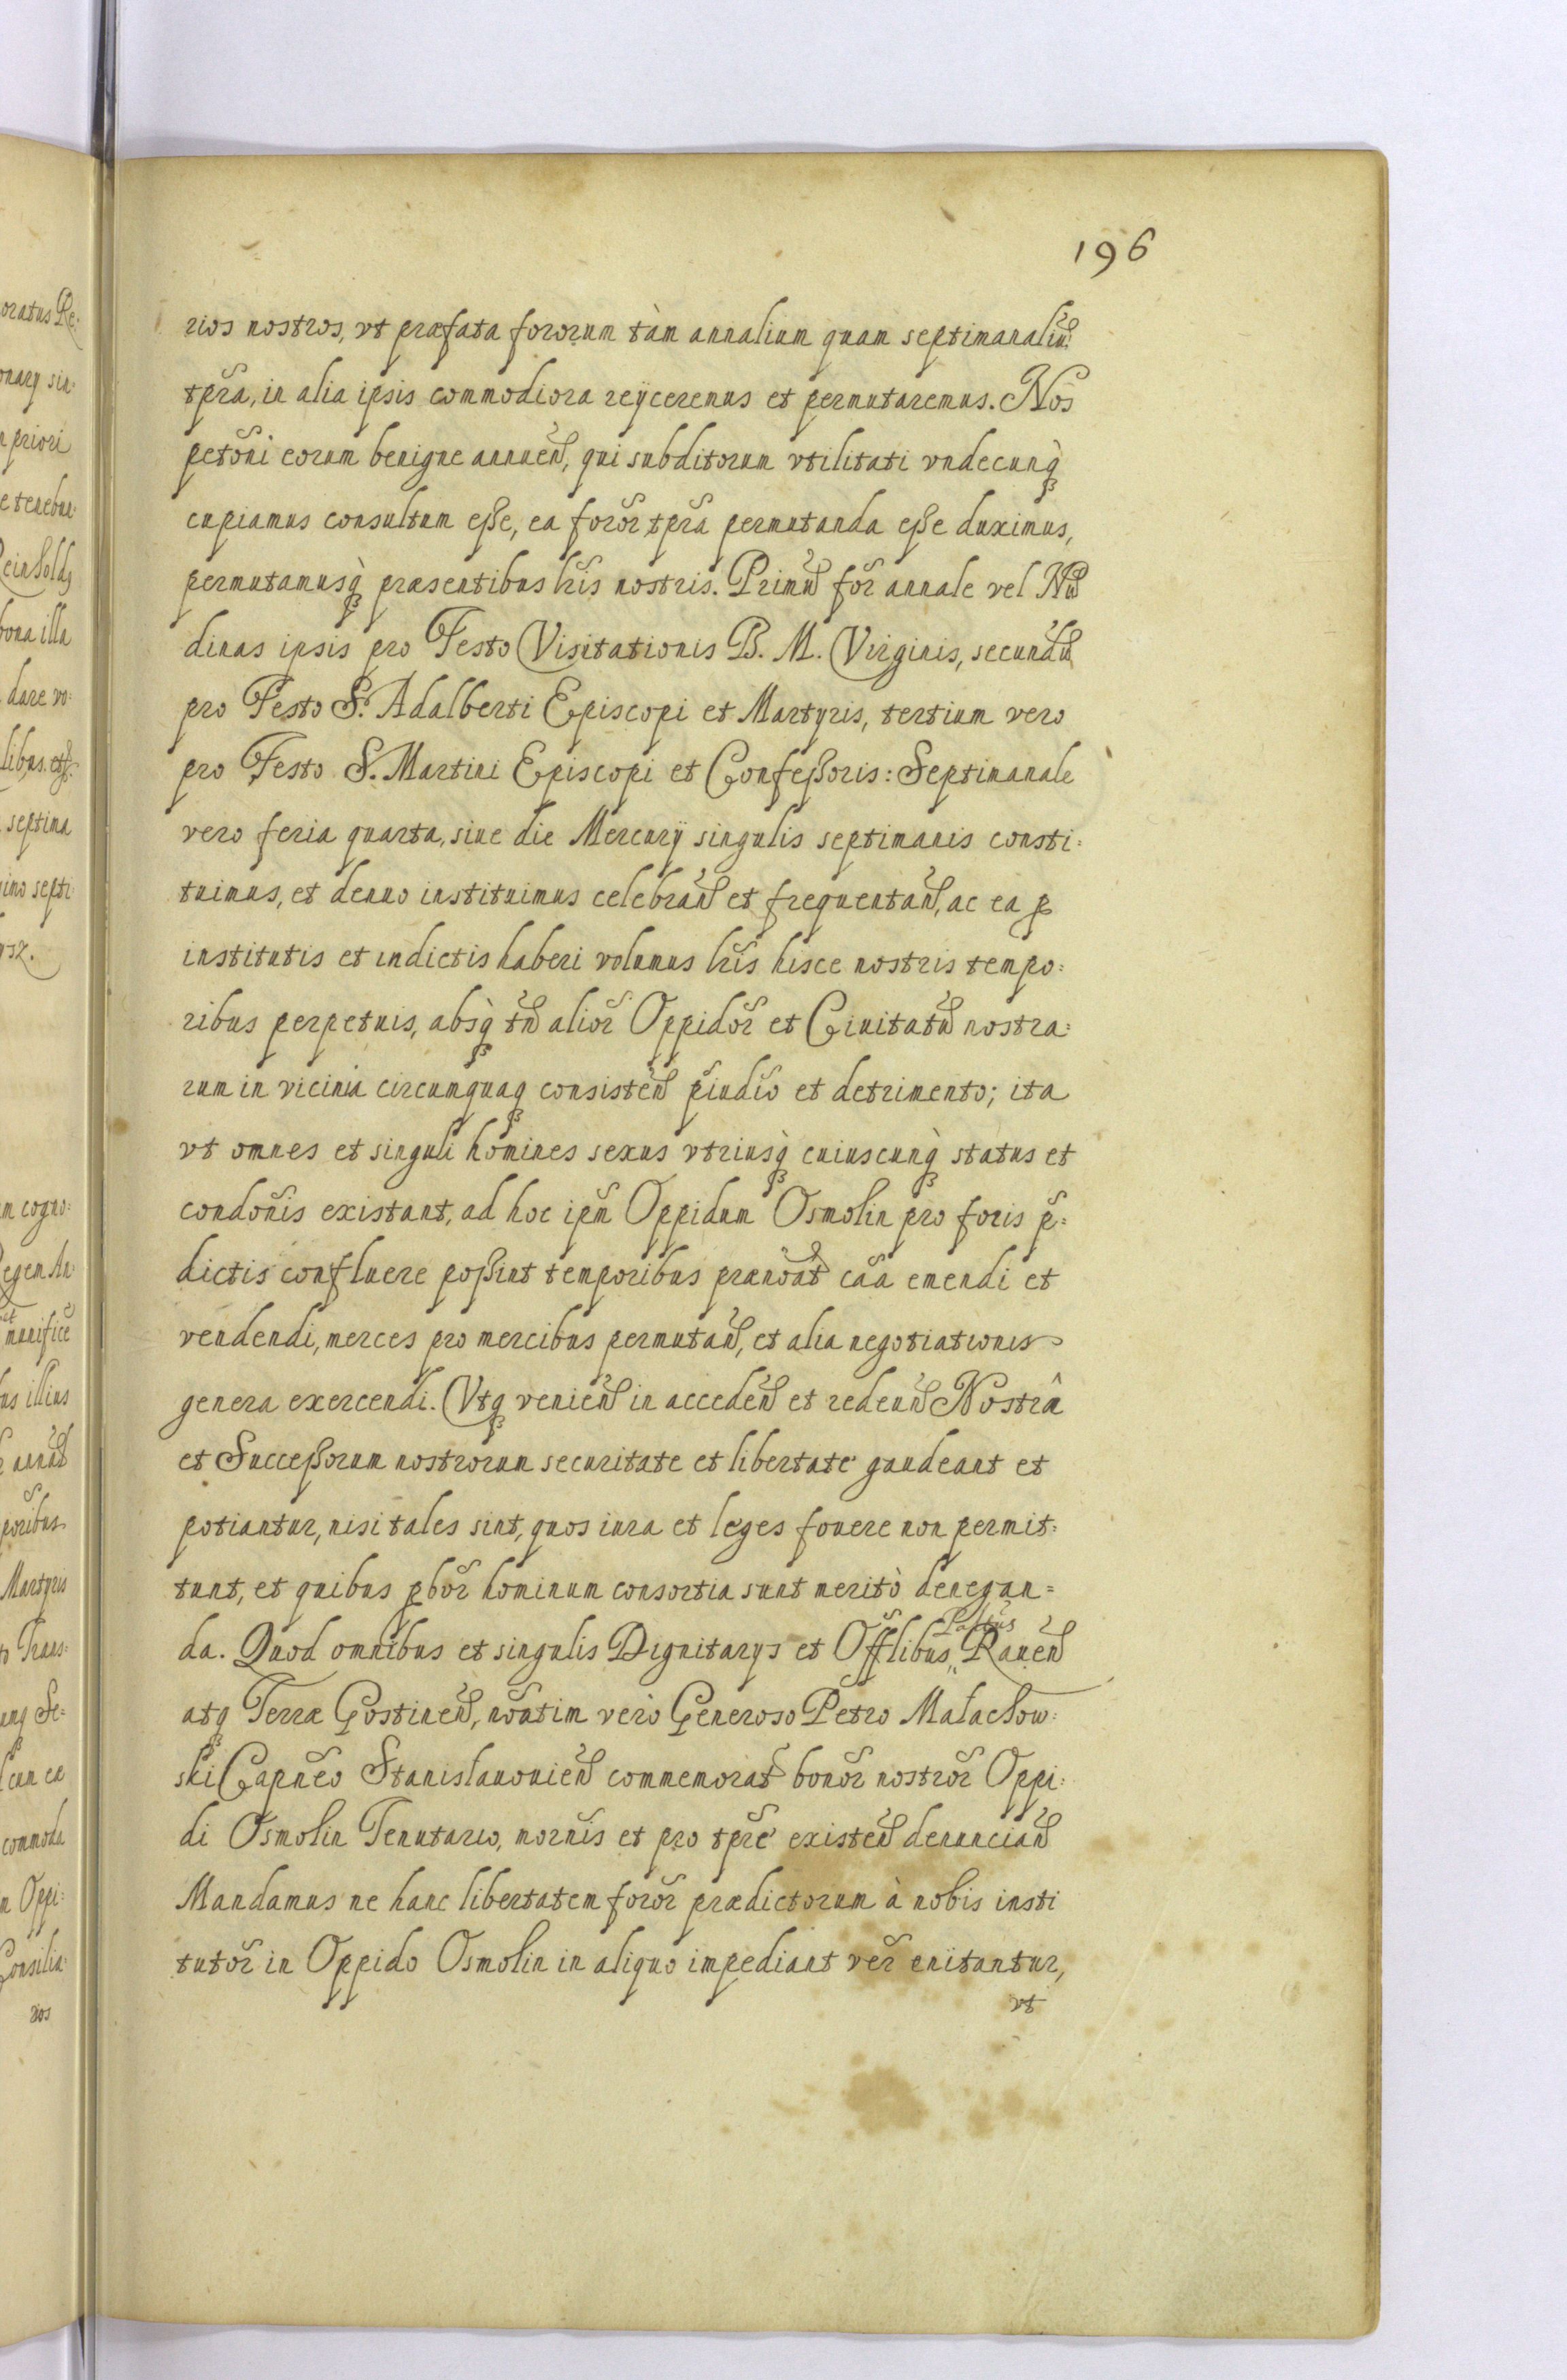 196
rios nostros, vt præfata fororum tàm annalium quam septimanaliũ
tp̃ra, in alia ipsis commodiora reÿceremus et permutaremus. Nos
petõni eorum benigne annueñ, qui subditorum vtilitati vndecunq̀
cupiamus consultum eße, ea forõr tp̃ra permutanda eße duximus,
permutamusq̀ præsentibus lr̃is nostris. Primũ fõr annale vel Nũ
dinas ipsis pro Festo Visitationis B. M. Virginis, secundũ
pro Festo S. Adalberti Episcopi et Martyris, tertium vero
pro Festo S. Martini Episcopi et Confeßoris: Septimanale
vero feria quarta, siue die Mercurÿ singulis septimanis consti:
tuimus, et denuo instituimus celebrañ et frequentañ, ac ea p
institutis et indictis haberi volumus lr̃is hisce nostris tempo:
ribus perpetuis, absq̀ tñ aliõr Oppidõr et Ciuitatũ nostra:
rum in vicinia circumquaq consisteñ p̃iudĩo et detrimento; ita
vt omnes et singuli homines sexus vtriusq̀ cuiuscunq̀ status et
condõnis existant, ad hoc ip̃m Oppidum Osmolin pro foris p̃:
dictis confluere poßint temporibus prænõat cãa emendi et
vendendi, merces pro mercibus permutañ, et alia negotiationis
genera exercendi. Vtq venieñ in accedeñ et redeuñ Nostrâ
et Succeßorum nostrorum securitate et libertate gaudeant et
potiantur, nisi tales sint, quos iura et leges fouere non permit:
tunt, et quibus pbõr hominum consortia sunt meritò denegan=
da. Quod omnibus et singulis Dignitarys et Offlibus Palt̃us Raueñ
atq Terræ Gostineñ, nõatim verò Generoso Petro Małachow:
ski Capñeo Stanislauouieñ commemorat bonõr nostrõr Oppi:
di Osmolin Tenutario, mornĩs et pro tp̃re existeñ denunciañ
Mandamus ne hanc libertatem forõr prædictorum à nobis insti
tutõr in Oppido Osmolin in aliquo impediant vẽr enitantur,
vt